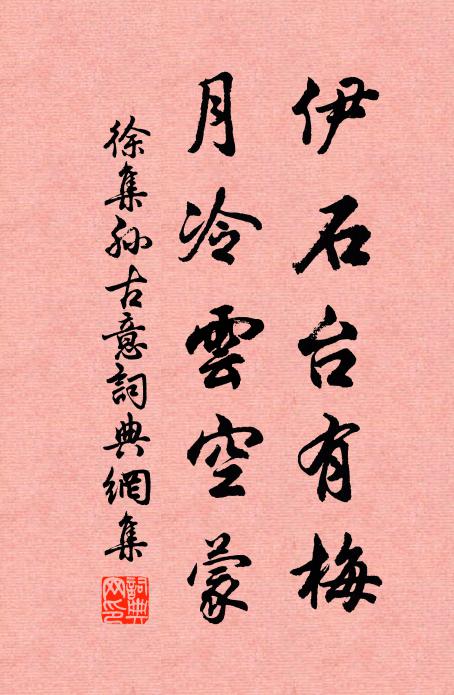 伊石台有梅
月冷雲空蒙
徐集孙古意詞典網集
詞典網印